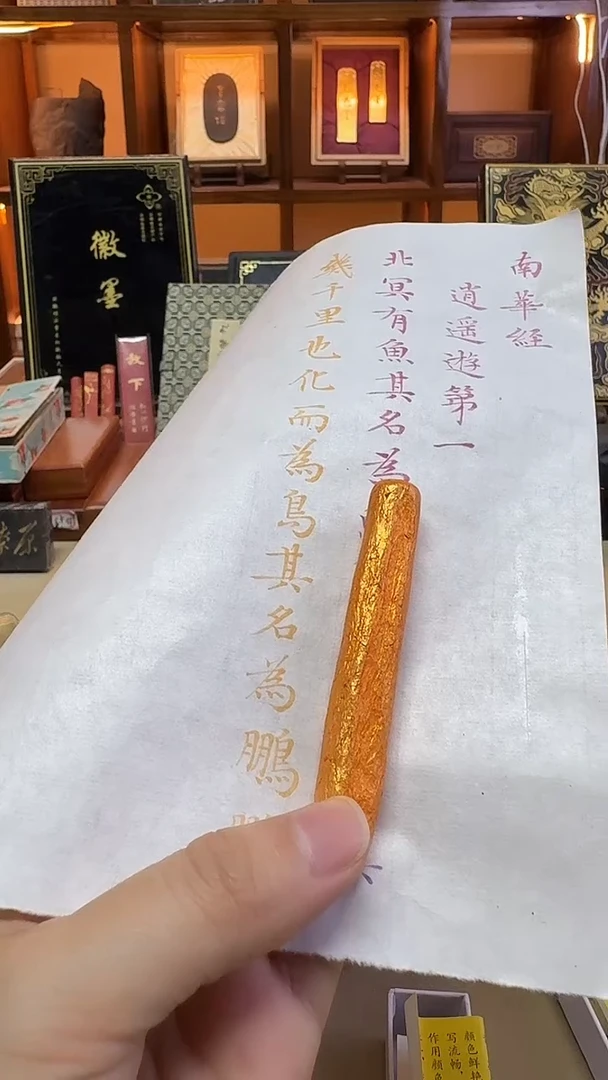 南華經
逍遥遊第一
北冥有魚其名為
幾千里也化而為鳥其名為鵬
徽墨
放下
顏色鮮
写流畅，
作用顏色